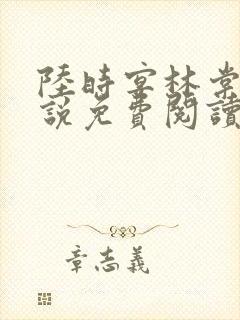 陸時宴林棠
說免費閱讀
章志義